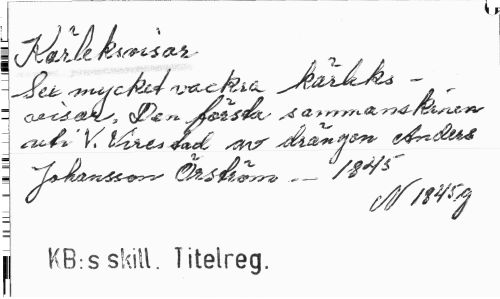 Kärleksvisor
Sex mycket vackra kärleks-
visor. Den första sammanskriven
uti V. Virestad av drängen Anders
Johansson Örström -- 1845
N 1845 g
KB:s skill. Titelreg.